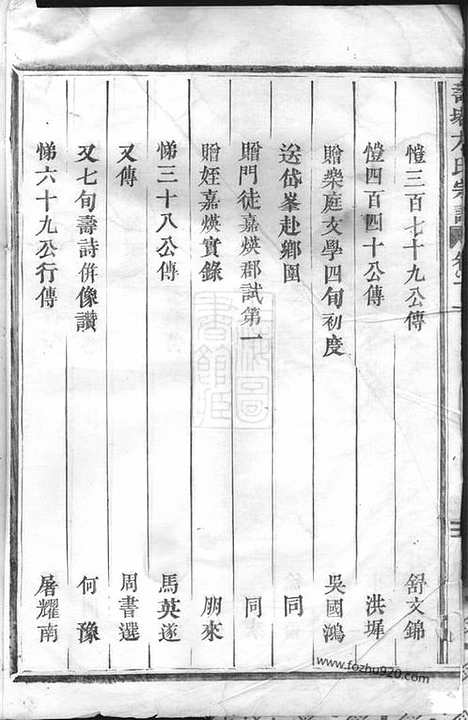 方氏宗譜 卷之二
愷三百七十九公傳 舒文錦
愷四百四十公傳 洪墀
贈樂庭文學四旬初度 吳國鴻
送岱峯赴鄉圍 同
贈門徒嘉煐郡試第一 同
贈姪嘉煐實錄 朋來
悌三十八公傳 馬英遂
又傳 周書選
又七旬壽詩併像讚 何豫
悌六十九公行傳 屠耀南
www.fozhu920.com